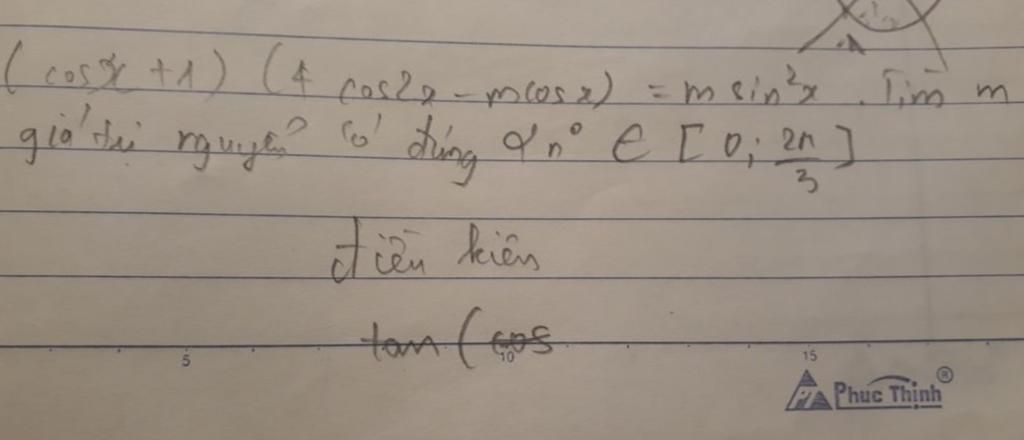 (cosx + 1) (4 cos2x - mcosx) = m sin²x. Tìm m
giá trị nguyên có đúng 2 n° ∈ [0; 2π/3]
điều kiện
tan (cos
5 10 15
Phuc Thinh ®